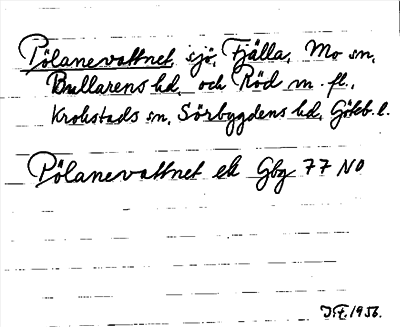 Pölanevattnet, sjö, Fjälla, Mo sn,
Bullarens hd, och Röd m. fl.,
Krokstads sn, Sörbygdens hd, Göteb. l.
Pölanevattnet ek Gbg 77 NO
J.F. 1956.